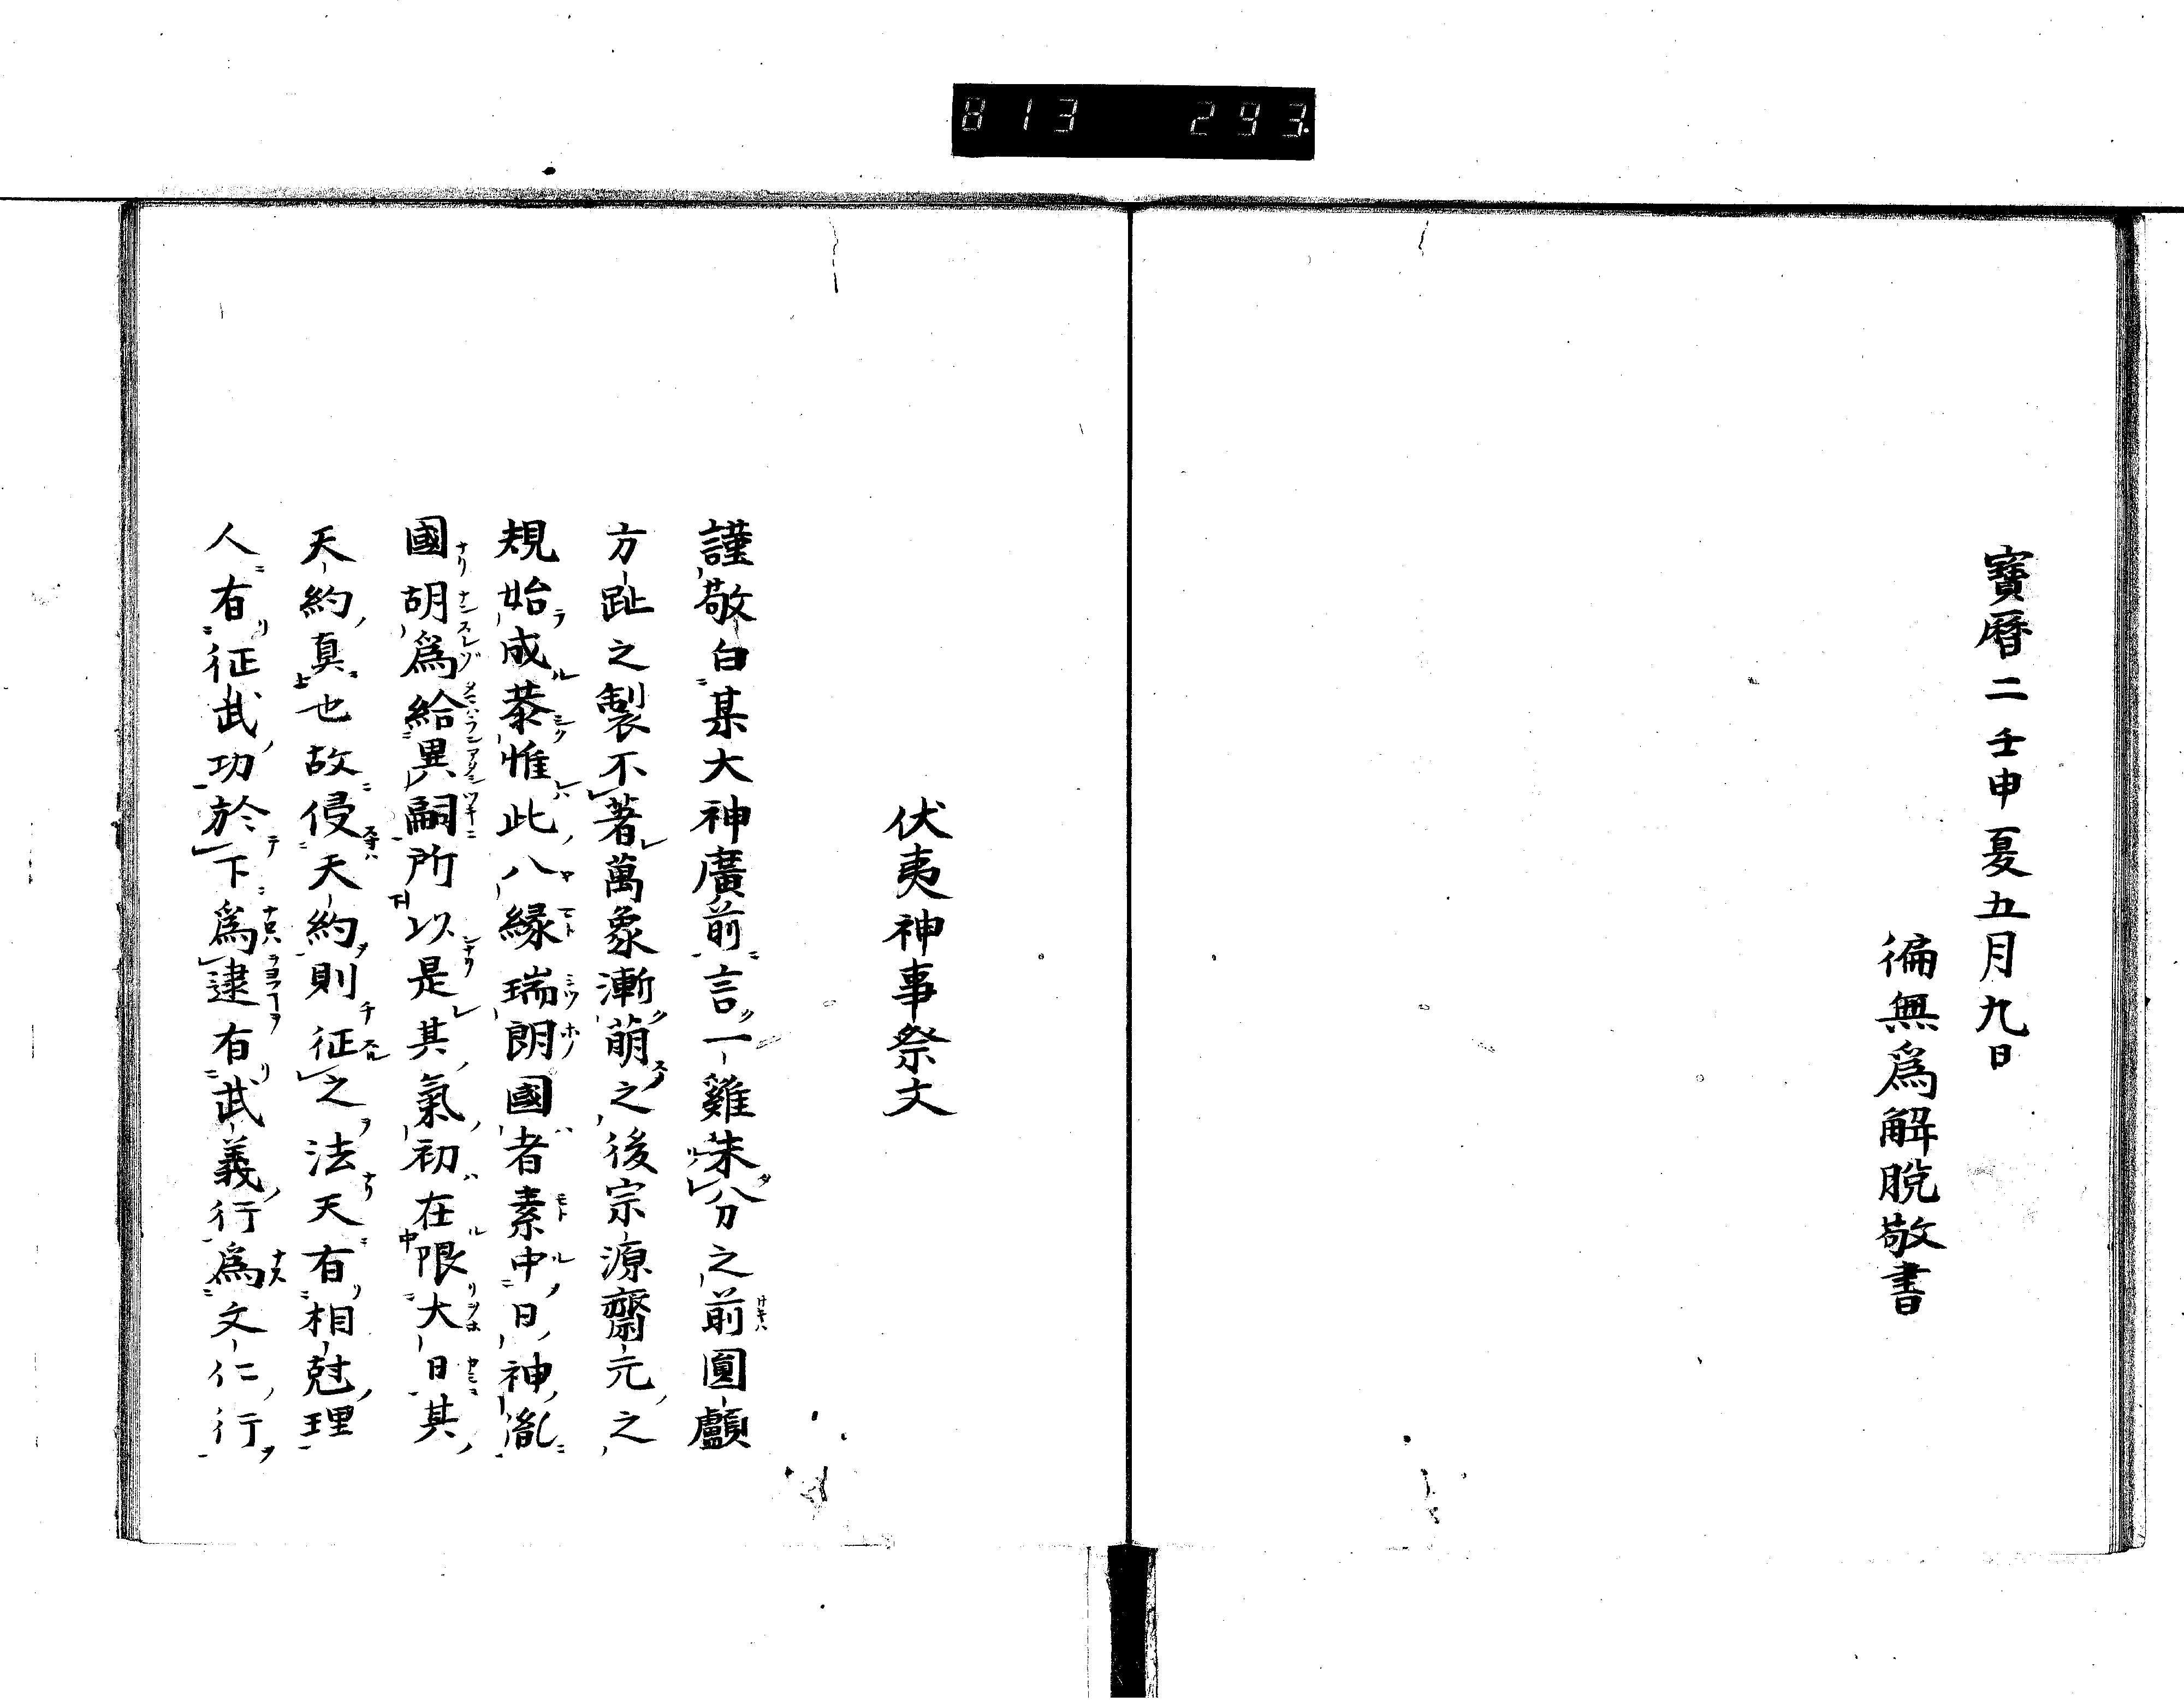 813 293
寶曆二壬申夏五月九日
徧無爲解脫敬書
伏夷神事祭文
謹敬白某大神廣前言一雞朱分之前圓顱
方趾之製不著萬象漸萠之後宗源齋元之
規始成恭惟此八縁瑞朗國者素中日神胤
國胡爲給異嗣所以是其氣初在限大日其
天約真也故侵天約則征之法天有相尅理
人有征武功於下爲逮有武義行爲文仁行